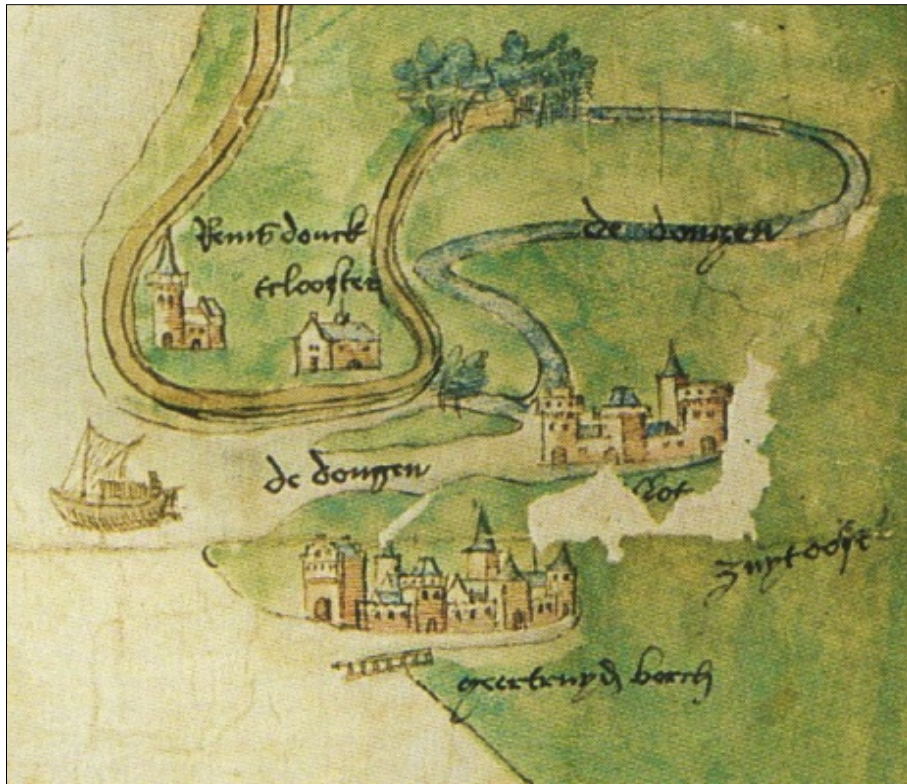 Remsdonck
clooster
de dongen
de dongen
slot
zuytoost
geertruyden berch